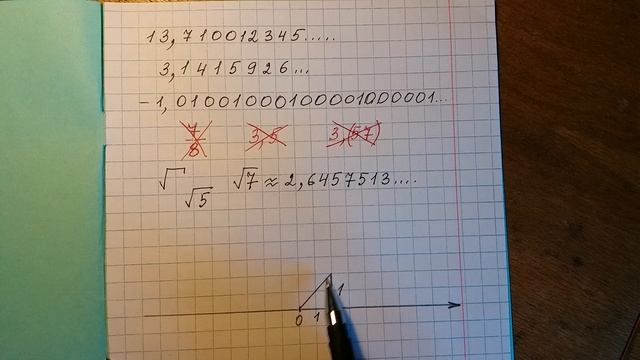 13,710012345.....
3,1415926...
-1,01001000100001000001...
7/8 3,5 3,(57)
√ √5 √7 ≈ 2,6457513....
1
0 1